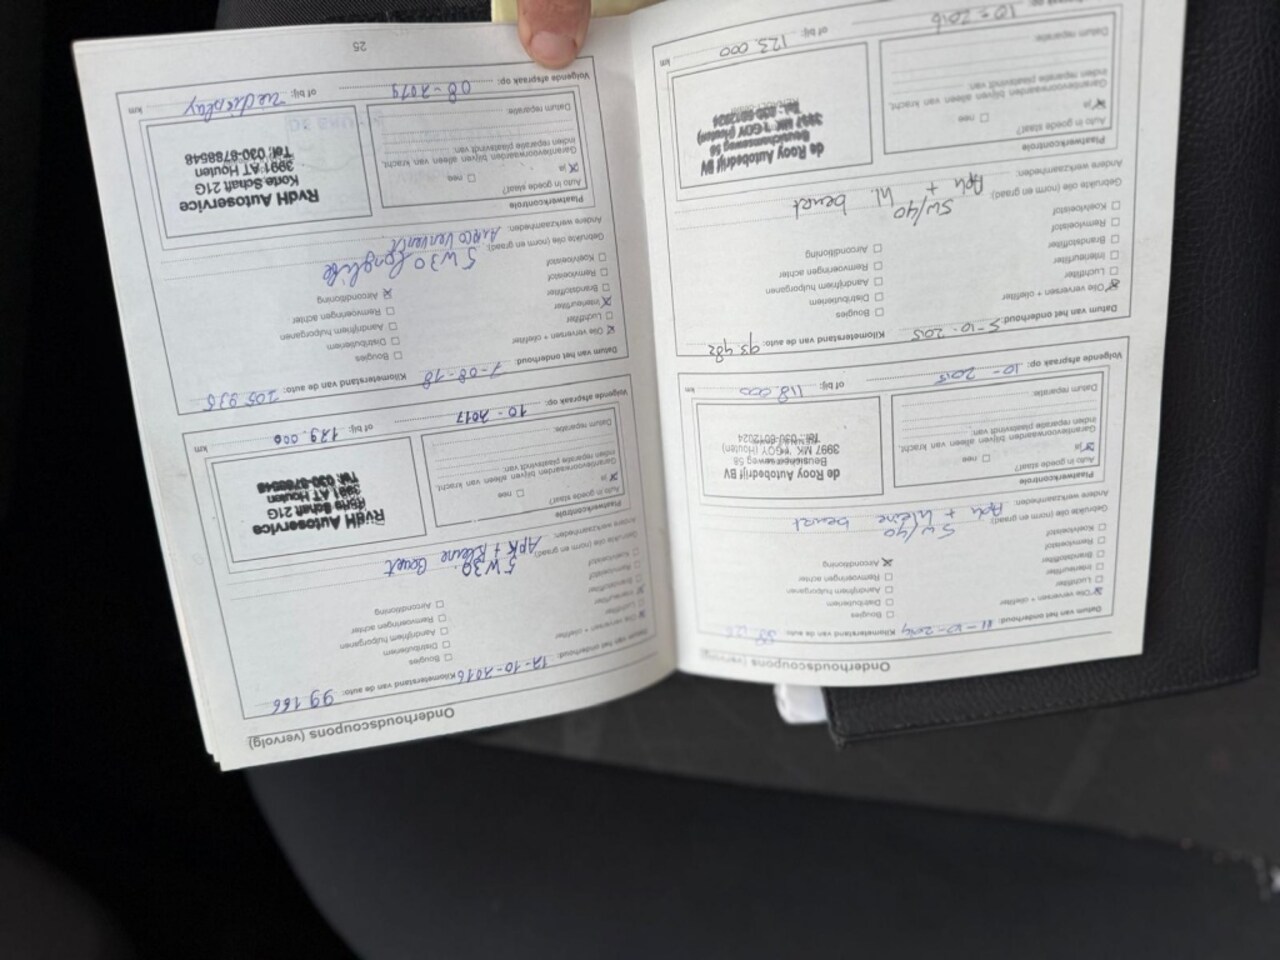 Onderhoudscoupons (vervolg)
Datum van het onderhoud: 11-10-2014 Kilometerstand van de auto:
Olie verversen + oliefilter
Luchtfilter
Interieurfilter
Brandstoffilter
Remvloeistof
Koelvloeistof
Bougies
Distributieriem
Aandrijfriem hulporganen
Remvoeringen achter
Airconditioning
Gebruikte olie (norm en graad): 5W/40
Andere werkzaamheden: Apk + kleine beurt
Plaatwerkcontrole
Auto in goede staat?
ja
nee
Garantievoorwaarden blijven alleen van kracht
indien reparatie plaatsvindt van:
Datum reparatie:
de Rooy Autobedrijf BV
Beusichemseweg 58
3997 MK 't GOY (Houten)
Tel.: 030-6012024
Volgende afspraak op: 10-2015 of bij: 118.000 km
Datum van het onderhoud: 5-10-2015 Kilometerstand van de auto: 93.482
Olie verversen + oliefilter
Luchtfilter
Interieurfilter
Brandstoffilter
Remvloeistof
Koelvloeistof
Bougies
Distributieriem
Aandrijfriem hulporganen
Remvoeringen achter
Airconditioning
Gebruikte olie (norm en graad): 5W/40
Andere werkzaamheden: Apk + kl. beurt
Plaatwerkcontrole
Auto in goede staat?
ja
nee
Garantievoorwaarden blijven alleen van kracht
indien reparatie plaatsvindt van:
Datum reparatie:
de Rooy Autobedrijf BV
Beusichemseweg 58
3997 MK 't GOY (Houten)
Tel.: 030-6012024
Volgende afspraak op: 10-2016 of bij: 123.000 km
Onderhoudscoupons (vervolg)
Datum van het onderhoud: 12-10-2016 Kilometerstand van de auto: 99.166
Olie verversen + oliefilter
Luchtfilter
Interieurfilter
Brandstoffilter
Remvloeistof
Koelvloeistof
Bougies
Distributieriem
Aandrijfriem hulporganen
Remvoeringen achter
Airconditioning
Gebruikte olie (norm en graad): 5W30
Andere werkzaamheden: APK + Kleine Beurt
Plaatwerkcontrole
Auto in goede staat?
ja
nee
Garantievoorwaarden blijven alleen van kracht
indien reparatie plaatsvindt van:
Datum reparatie:
RvdH Autoservice
Korte Schaft 21G
3991 AT Houten
Tel: 030-8788548
Volgende afspraak op: 10-2017 of bij: 129.000 km
Datum van het onderhoud: 7-08-18 Kilometerstand van de auto: 105.935
Olie verversen + oliefilter
Luchtfilter
Interieurfilter
Brandstoffilter
Remvloeistof
Koelvloeistof
Bougies
Distributieriem
Aandrijfriem hulporganen
Remvoeringen achter
Airconditioning
Gebruikte olie (norm en graad): 5W30 Longlife
Andere werkzaamheden: Airco Ververst
Plaatwerkcontrole
Auto in goede staat?
ja
nee
Garantievoorwaarden blijven alleen van kracht
indien reparatie plaatsvindt van:
Datum reparatie:
RvdH Autoservice
Korte Schaft 21G
3991 AT Houten
Tel: 030-8788548
Volgende afspraak op: 08-2019 of bij: zie display km
25